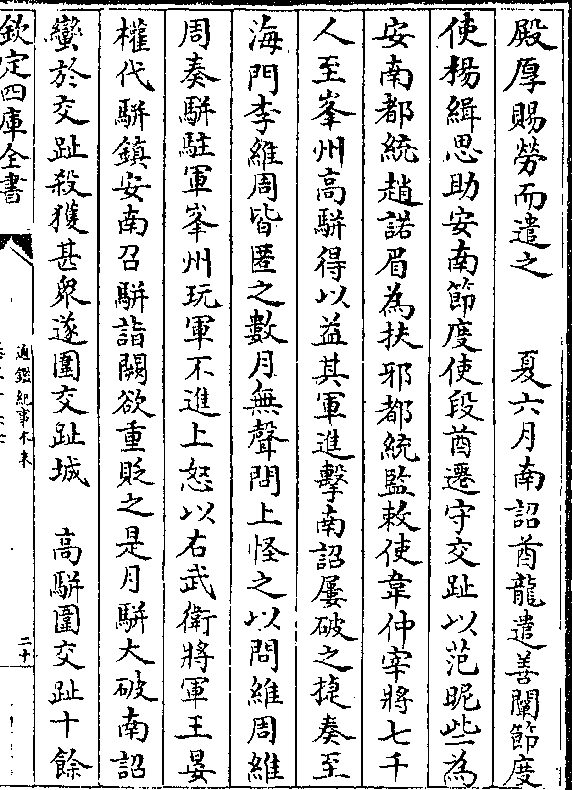 殿厚賜勞而遣之　夏六月南詔酋龍遣善闡節度
使楊緝思助安南節度使段酋遷守交趾以范昵些為
安南都統趙諾眉為扶邪都統監敕使韋仲宰將七千
人至峯州高駢得以益其軍進擊南詔屢破之捷奏至
海門李維周皆匿之數月無聲問上怪之以問維周維
周奏駢駐軍峯州玩軍不進上怒以右武衛將軍王晏
權代駢鎮安南召駢詣闕欲重貶之是月駢大破南詔
蠻於交趾殺獲甚衆遂圍交趾城　高駢圍交趾十餘
欽定四庫全書
通鑑紀事本末
二十